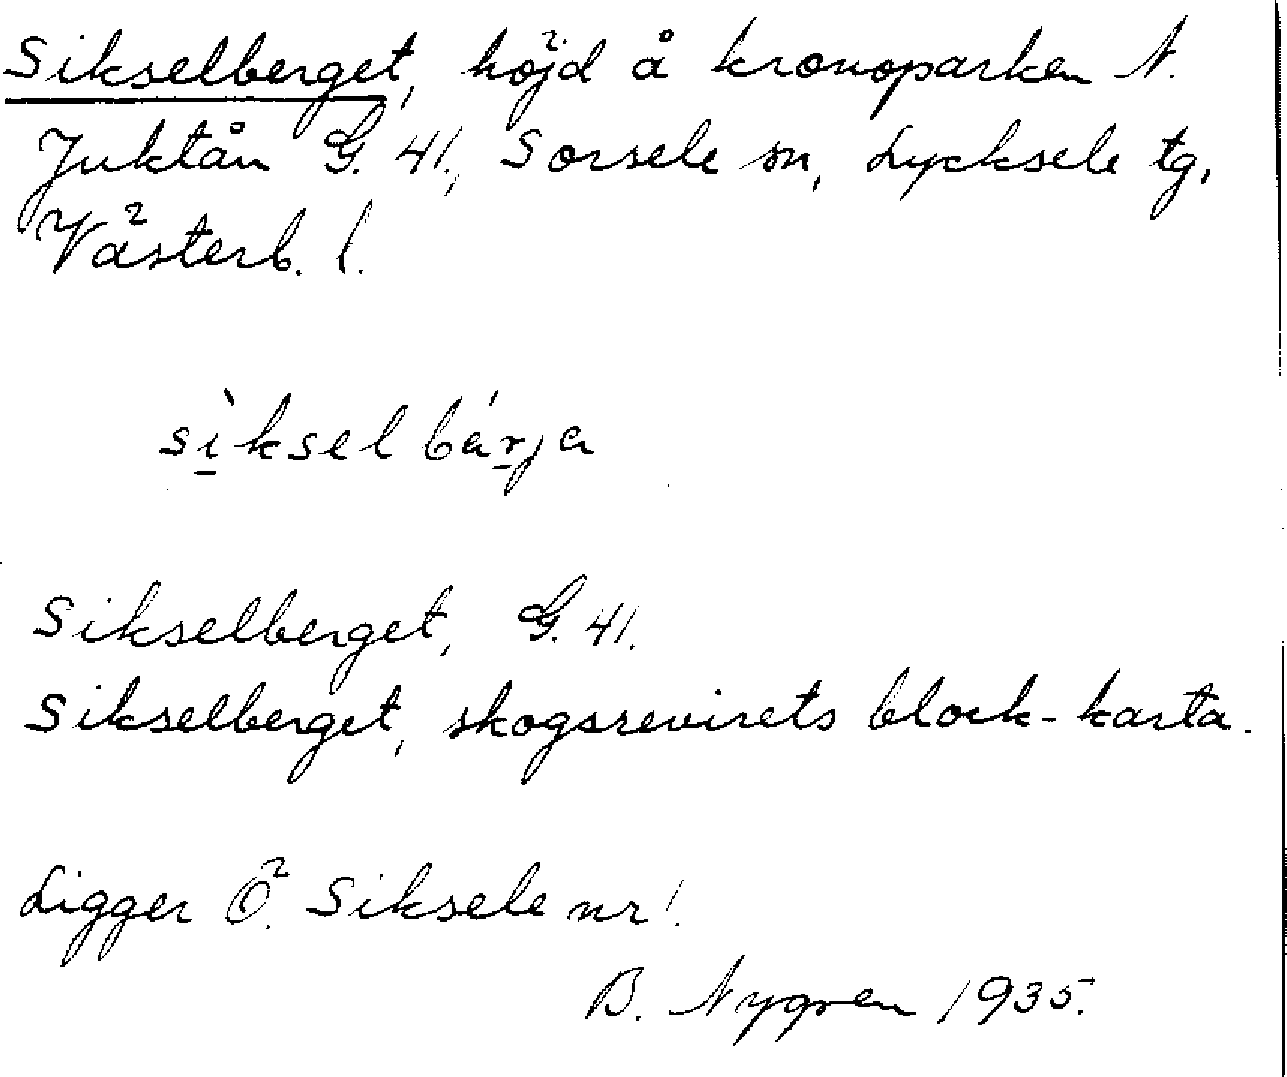 Sikselberget, höjd å kronoparken N.
Juktån G. 41., Sorsele sn, Lycksele tg,
Västerb. l.
sìksel bárja
Sikselberget, G. 41.
Sikselberget, skogsrevirets block-karta.
Ligger Ö. Siksele nr 1.
B. Nygren 1935.